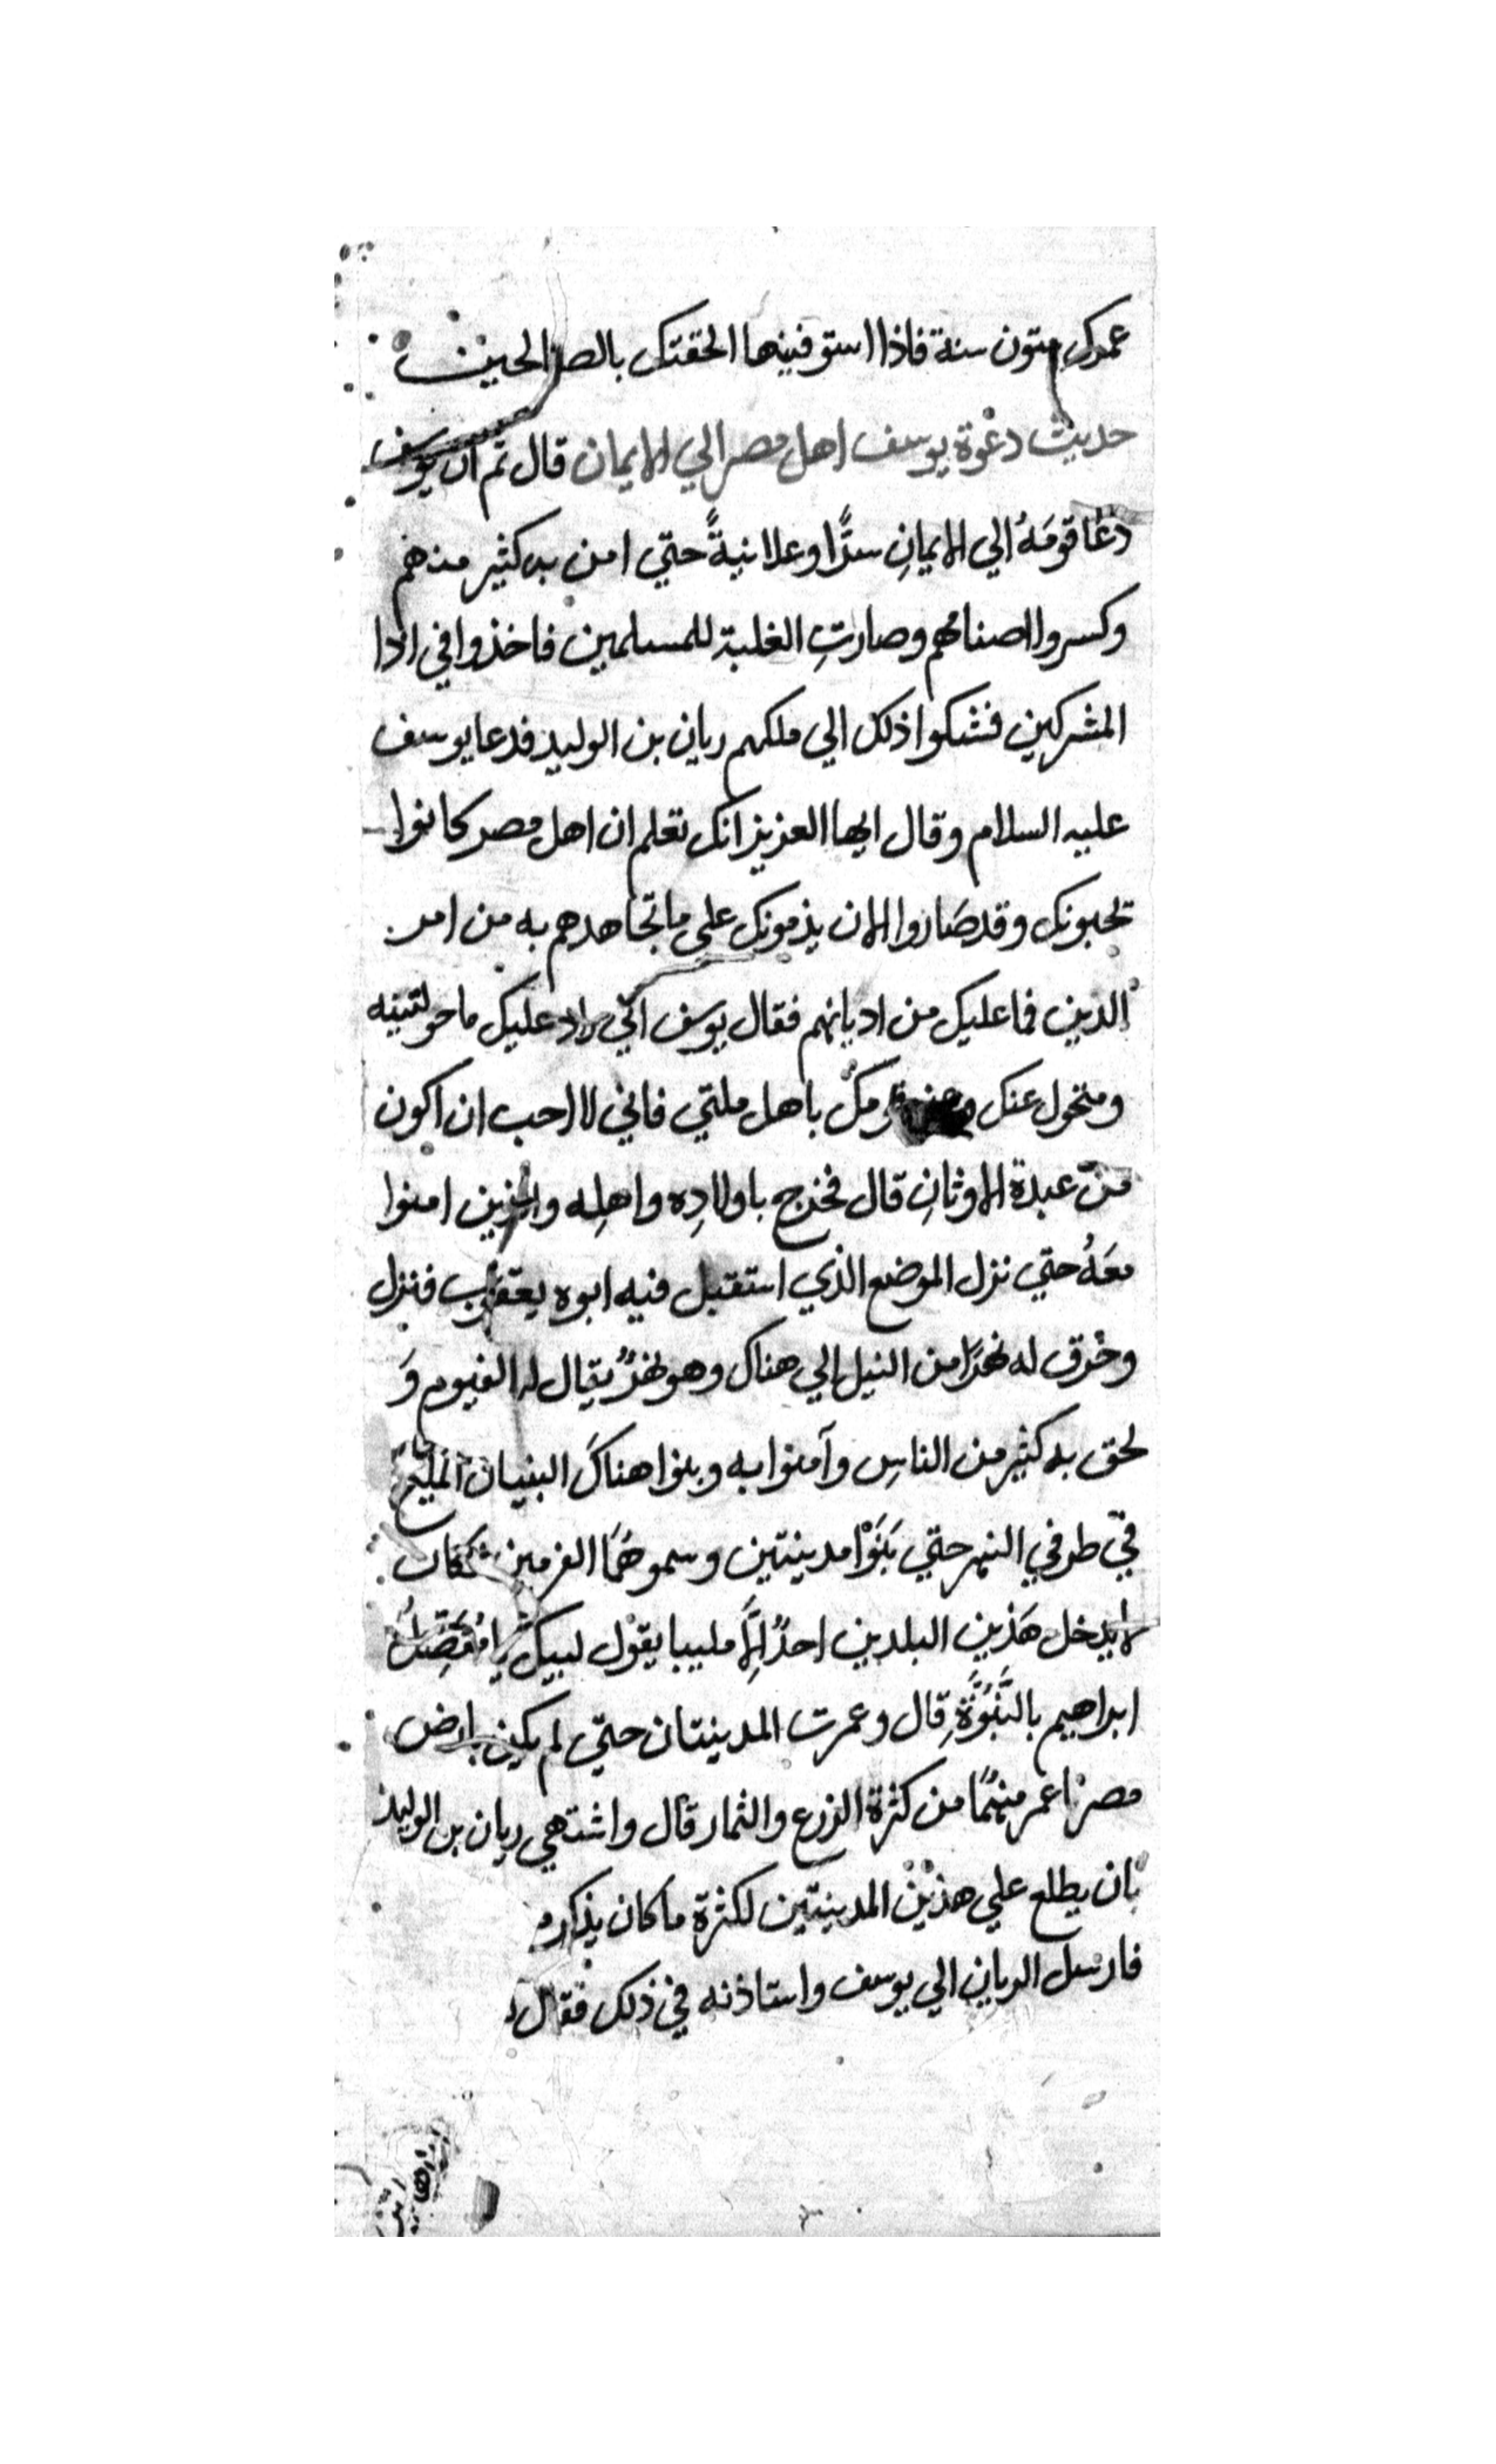 عمرك ستون سنة فاذا استوفيتها الحقتك بالصالحين
حديث دعوة يوسف اهل مصر الي الايمان قال ثم ان يوسف
دعا قومَهُ الي الايمانِ سرًّا وعلانيةً حتي امن به كثير منهم
وكسروا اصنامهم وصارتِ الغلبة للمسلمين فاخذوا في اذا
المشركين فشكوا ذلك الي ملكهم ريان بن الوليد فدعا يوسف
عليه السلام وقال ايها العزيز انك تعلم ان اهل مصر كانوا
تحبونك وقد صَاروا الان يذمونك علي ما تجاهدهم به من امر
الدين فما عليك من اديانهم فقال يوسف اني راد عليك ما خولتنيه
ومتحول عنك قومك باهل ملتي فاني لا احب ان اكون
من عبدة الاوثانِ قال فخرج باولادِه واهلِه والذين امنوا
معَهُ حتي نزل الموضع الذي استقبل فيه ابوه يعقوب فنزل
وخرق له نهرًا من النيل الي هناك وهو نهرٌ يقال له الفيوم وَ
لحق به كثير من الناسِ وآمنوا به وبنوا هناكَ البنيان المليح
في طرفي النهر حتي بَنَوْا مدينتين وسموهُمَا الفرمين فكان
لا يدخل هَذين البلدين احدٌ إلَّا ملبيا يقول لبيك يا مُفَضِلُ
ابراهيم بالنُّبُوَّةِ قال وعمرت المدينتان حتي لم يكن بارض
مصر اعمر منهُمَا من كثرة الزرع والثمار قال واشتهي ريان بن الوليد
بان يطلع علي هذين المدينتين لكثرة ما كان يذكر
فارسل الريان الي يوسف واستاذنه في ذلك فقال